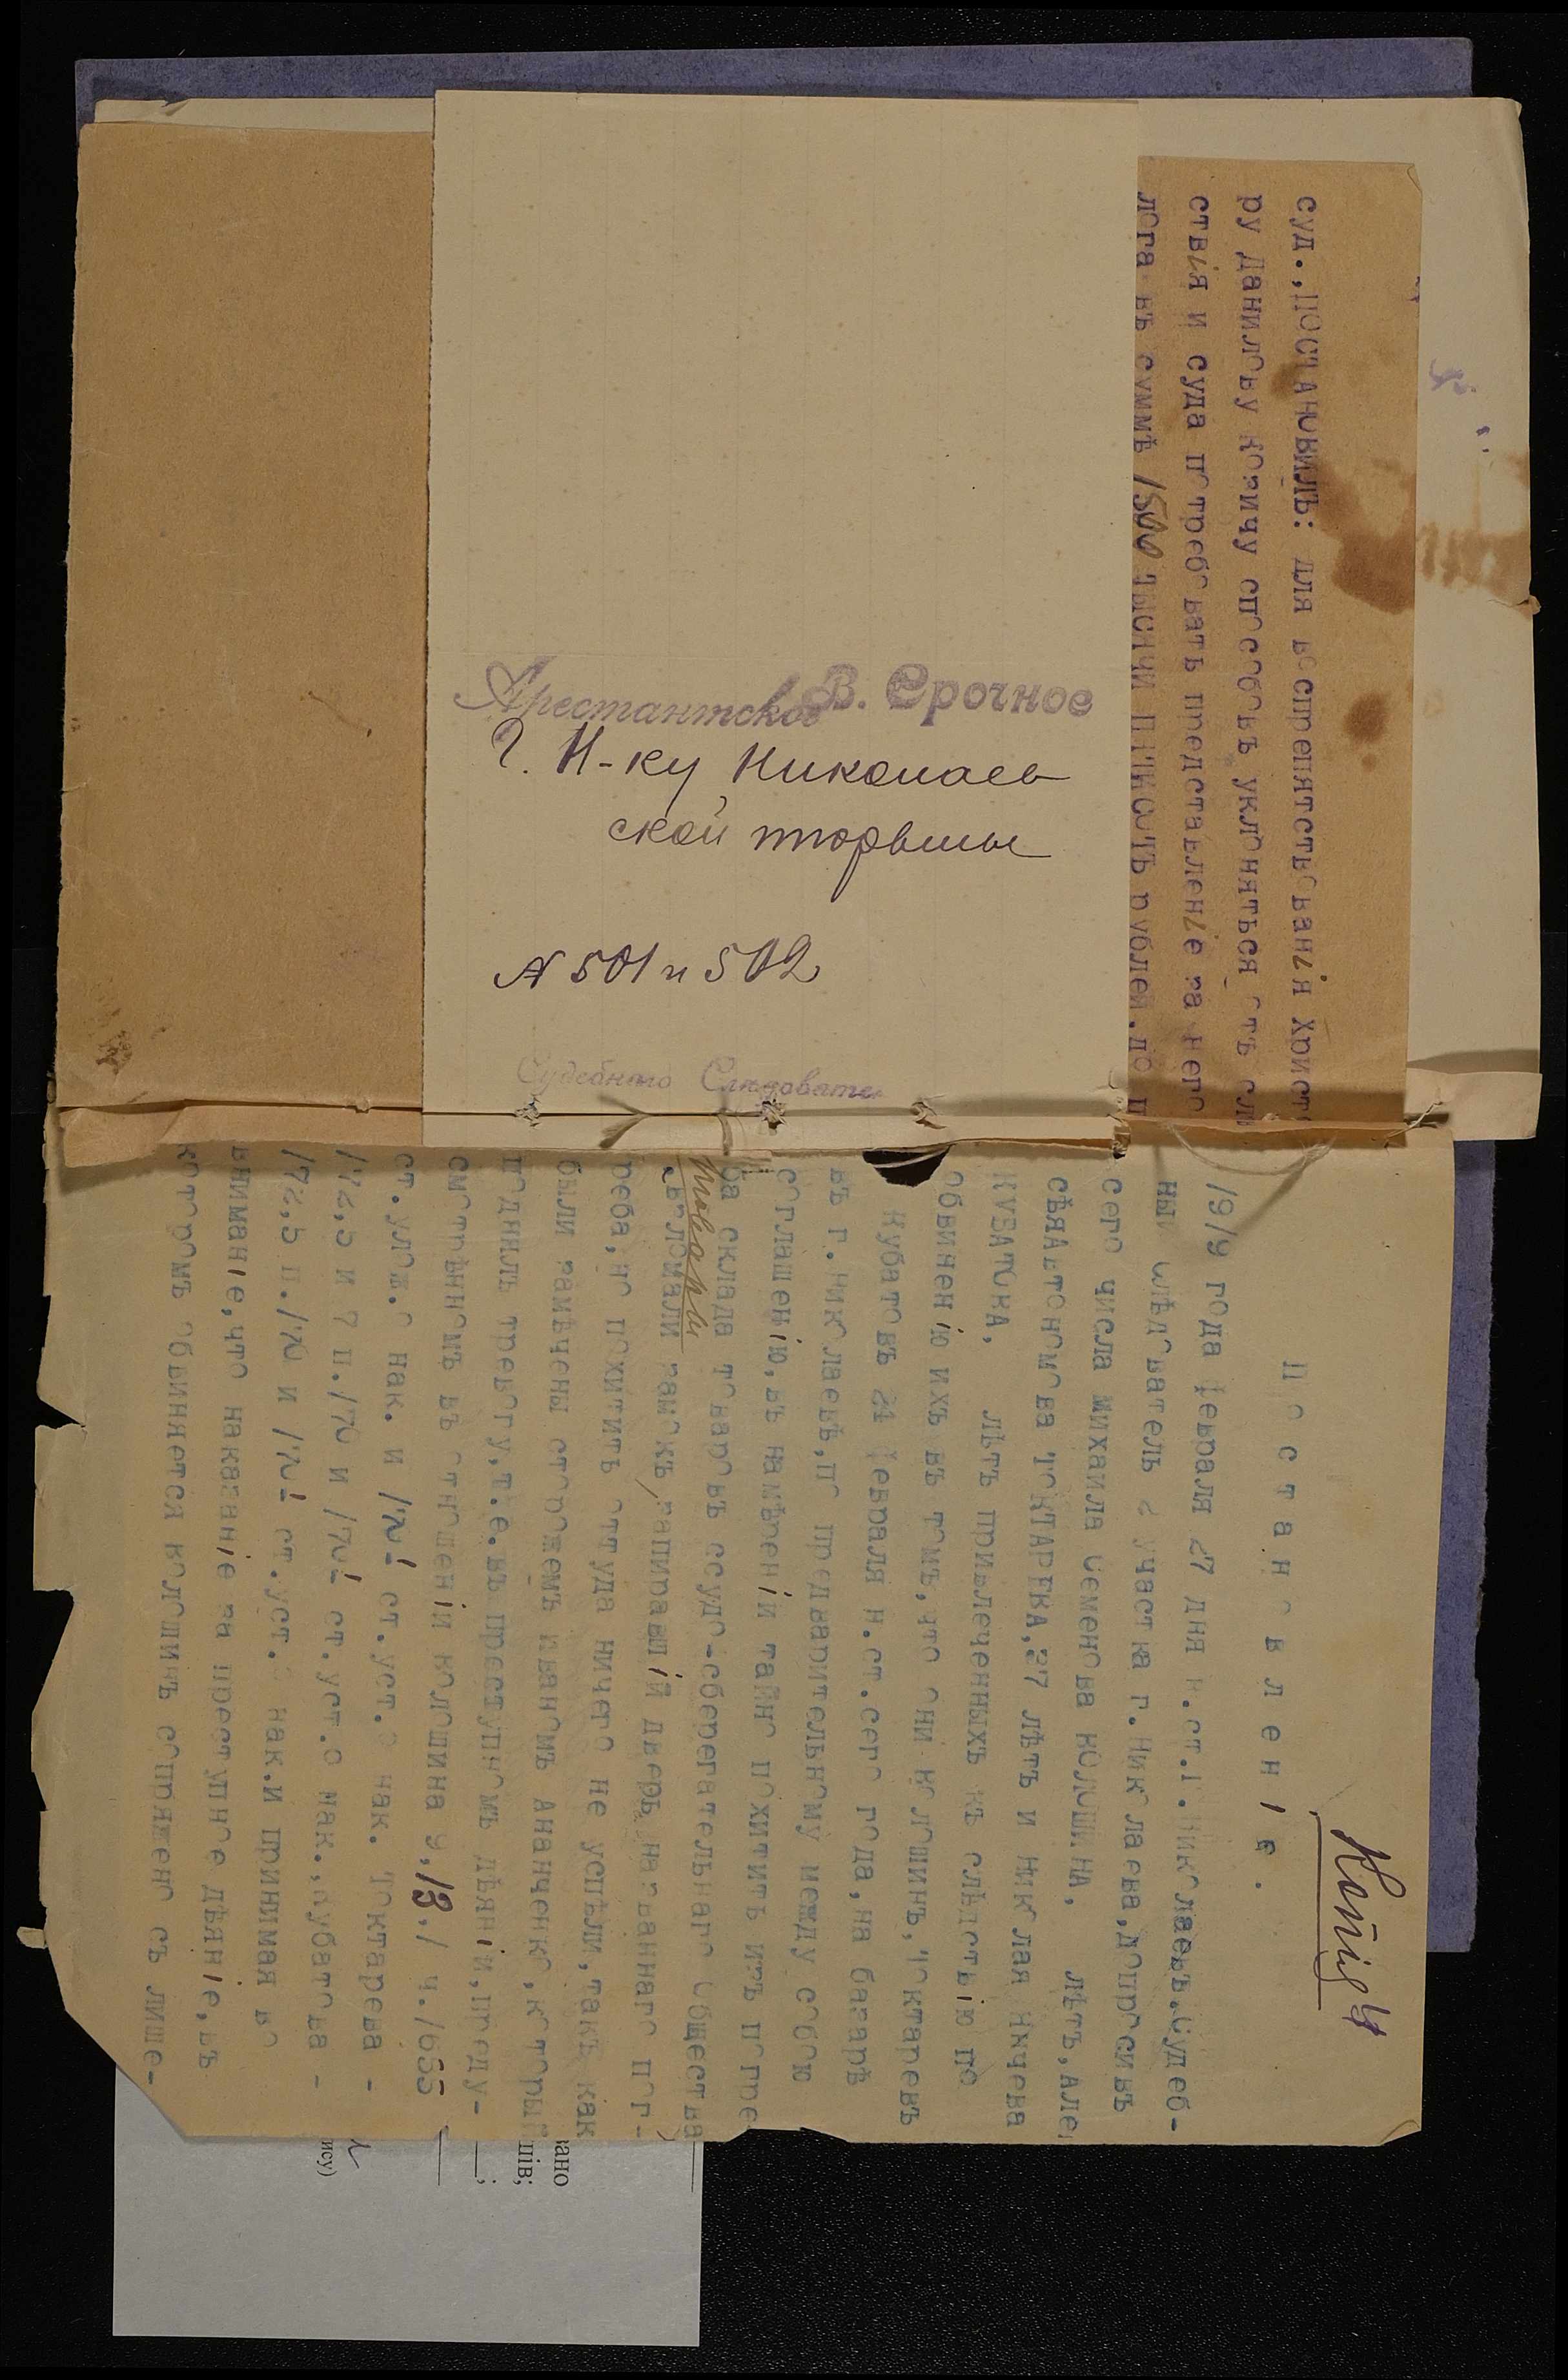 Арестантское В. Срочное
Г. Н-ку Николаев
ской тюрьмы
№ 501 и 502
Судебного Следовате
суд.,ПОСТАНОВИЛЪ: для воспрепятствованія Христ
ру Данилову способовъ уклоняться отъ сл
ствія и суда потребовать представленіе за него
лога въ суммѣ 1500 тысячи пятисотъ рублей.до п
Копія
Постановленіе.
1919 года Февраля 27 дня н.ст.Г.Николаевъ.Судеб-
ный Слѣдователь 2 участка г.Николаева,допросивъ
сего числа Михаила Семенова КОЛОШИНА, лѣтъ,Але
сѣя Автономова ТОКТАРЕВА,27 лѣтъ и Николая
КУБАТОВА, лѣтъ привлеченныхъ къ слѣдствію по
обвиненію ихъ въ томъ,что они Колошинъ,Токтаревъ
Кубатовъ 24 Февраля н.ст.сего года,на базарѣ
въ г.Николаевѣ,по предварительному между собою
соглашенію,въ намѣреніи тайно похитить изъ погре
ба склада товаровъ ссудо-сберегательнаго Общества
товары
взломали замокъ,запиравшій дверь названнаго пог-
реба,но похитить оттуда ничего не успѣли,такъ как
были замѣчены сторожемъ Иваномъ Ананченко,который
поднялъ тревогу,т.е.въ преступномъ дѣяніи,преду-
смотрѣнномъ въ отношеніи Колошина 9,13,1 ч.1655
ст.улож.о нак. и 170¹ ст.уст.о нак. Токтарева -
172,5 и 2 п.170 и 170¹ ст.уст.о нак.,Кубатова -
172,5 п.170 и 170¹ ст.уст.о нак.и принимая во
вниманіе,что наказаніе за преступное дѣяніе,въ
которомъ обвиняется Колошинъ сопряжено съ лише-
вано
пів;
ису)